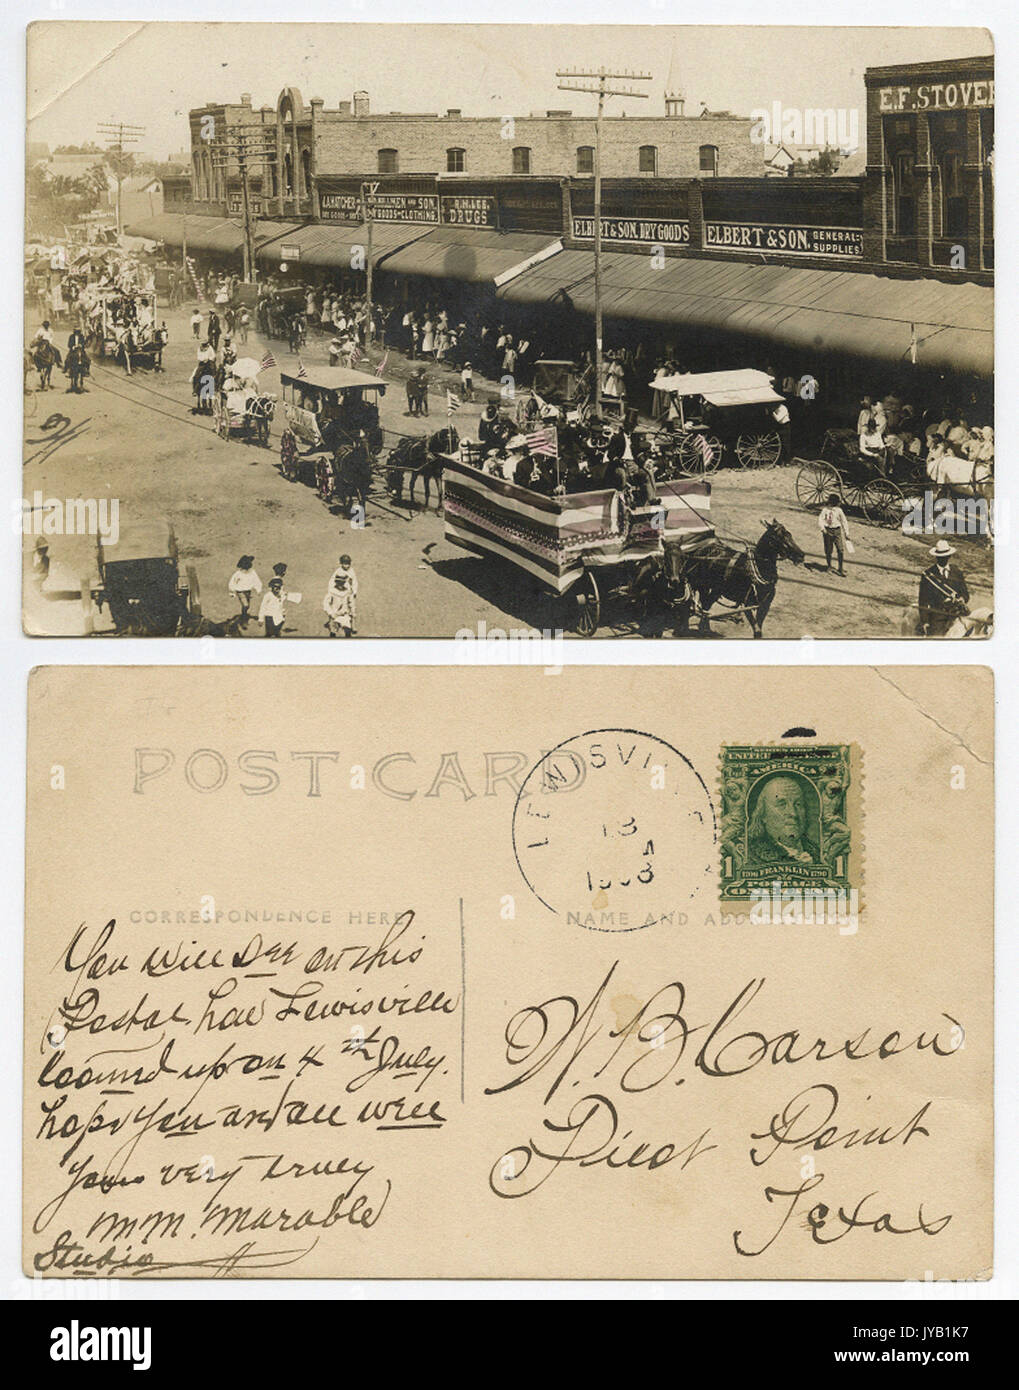 E.F. STOVE
J.A. HATCHER
AND SON.
DRY GOODS-CLOTHING
DRUGS
ELBERT & SON. DRY GOODS
ELBERT & SON. GENERAL
SUPPLIES
POST CARD
LEWISVILLE
13
1908
SERIES 1902
UNITED STATES OF AMERICA
1 1
1706 FRANKLIN 1790
POSTAGE
ONE CENT
CORRESPONDENCE HERE
NAME AND ADDRESS HERE
You will see on this
Postal how Lewisville
loomd up on 4th July.
hope you and all well
yours very truly
M M. Marable
Studio
W. B. Carson
Pilot Point
Texas
alamy
JYB1K7
www.alamy.com